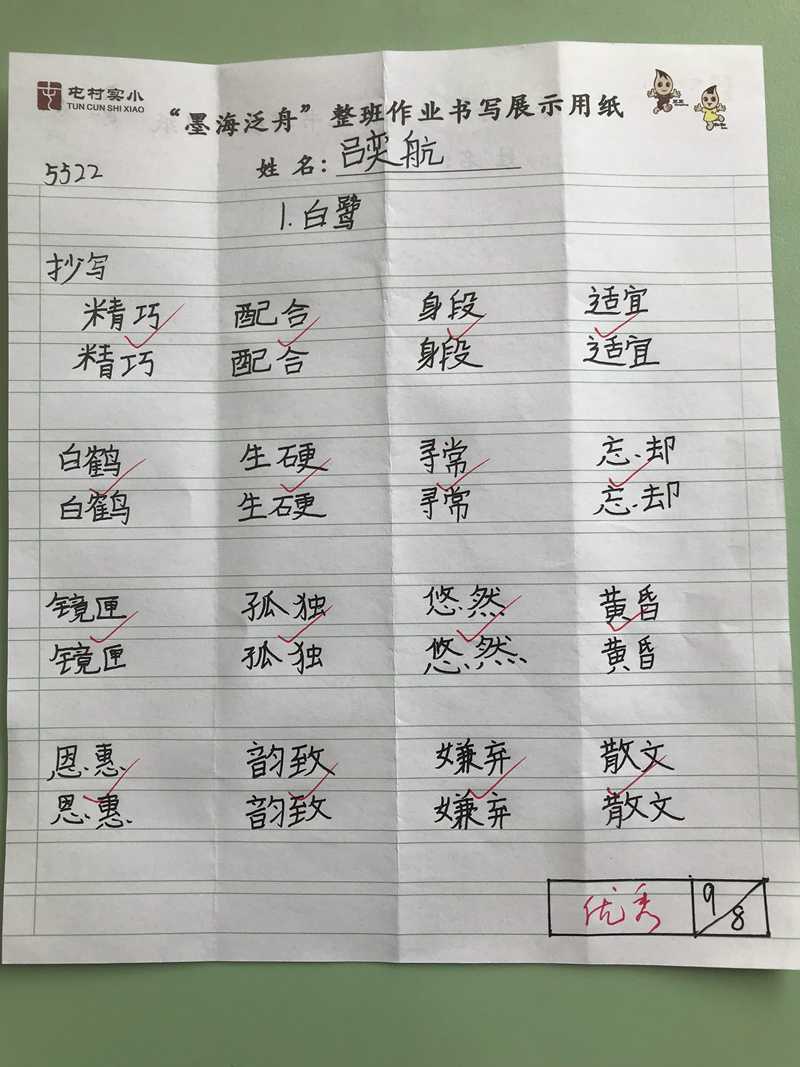 屯村实小
TUN CUN SHI XIAO
“墨海泛舟”整班作业书写展示用纸
5522 姓名：吕奕航
1.白鹭
抄写
精巧 配合 身段 适宜
精巧 配合 身段 适宜
白鹤 生硬 寻常 忘却
白鹤 生硬 寻常 忘却
镜匣 孤独 悠然 黄昏
镜匣 孤独 悠然 黄昏
恩惠 韵致 嫌弃 散文
恩惠 韵致 嫌弃 散文
优秀 9/8